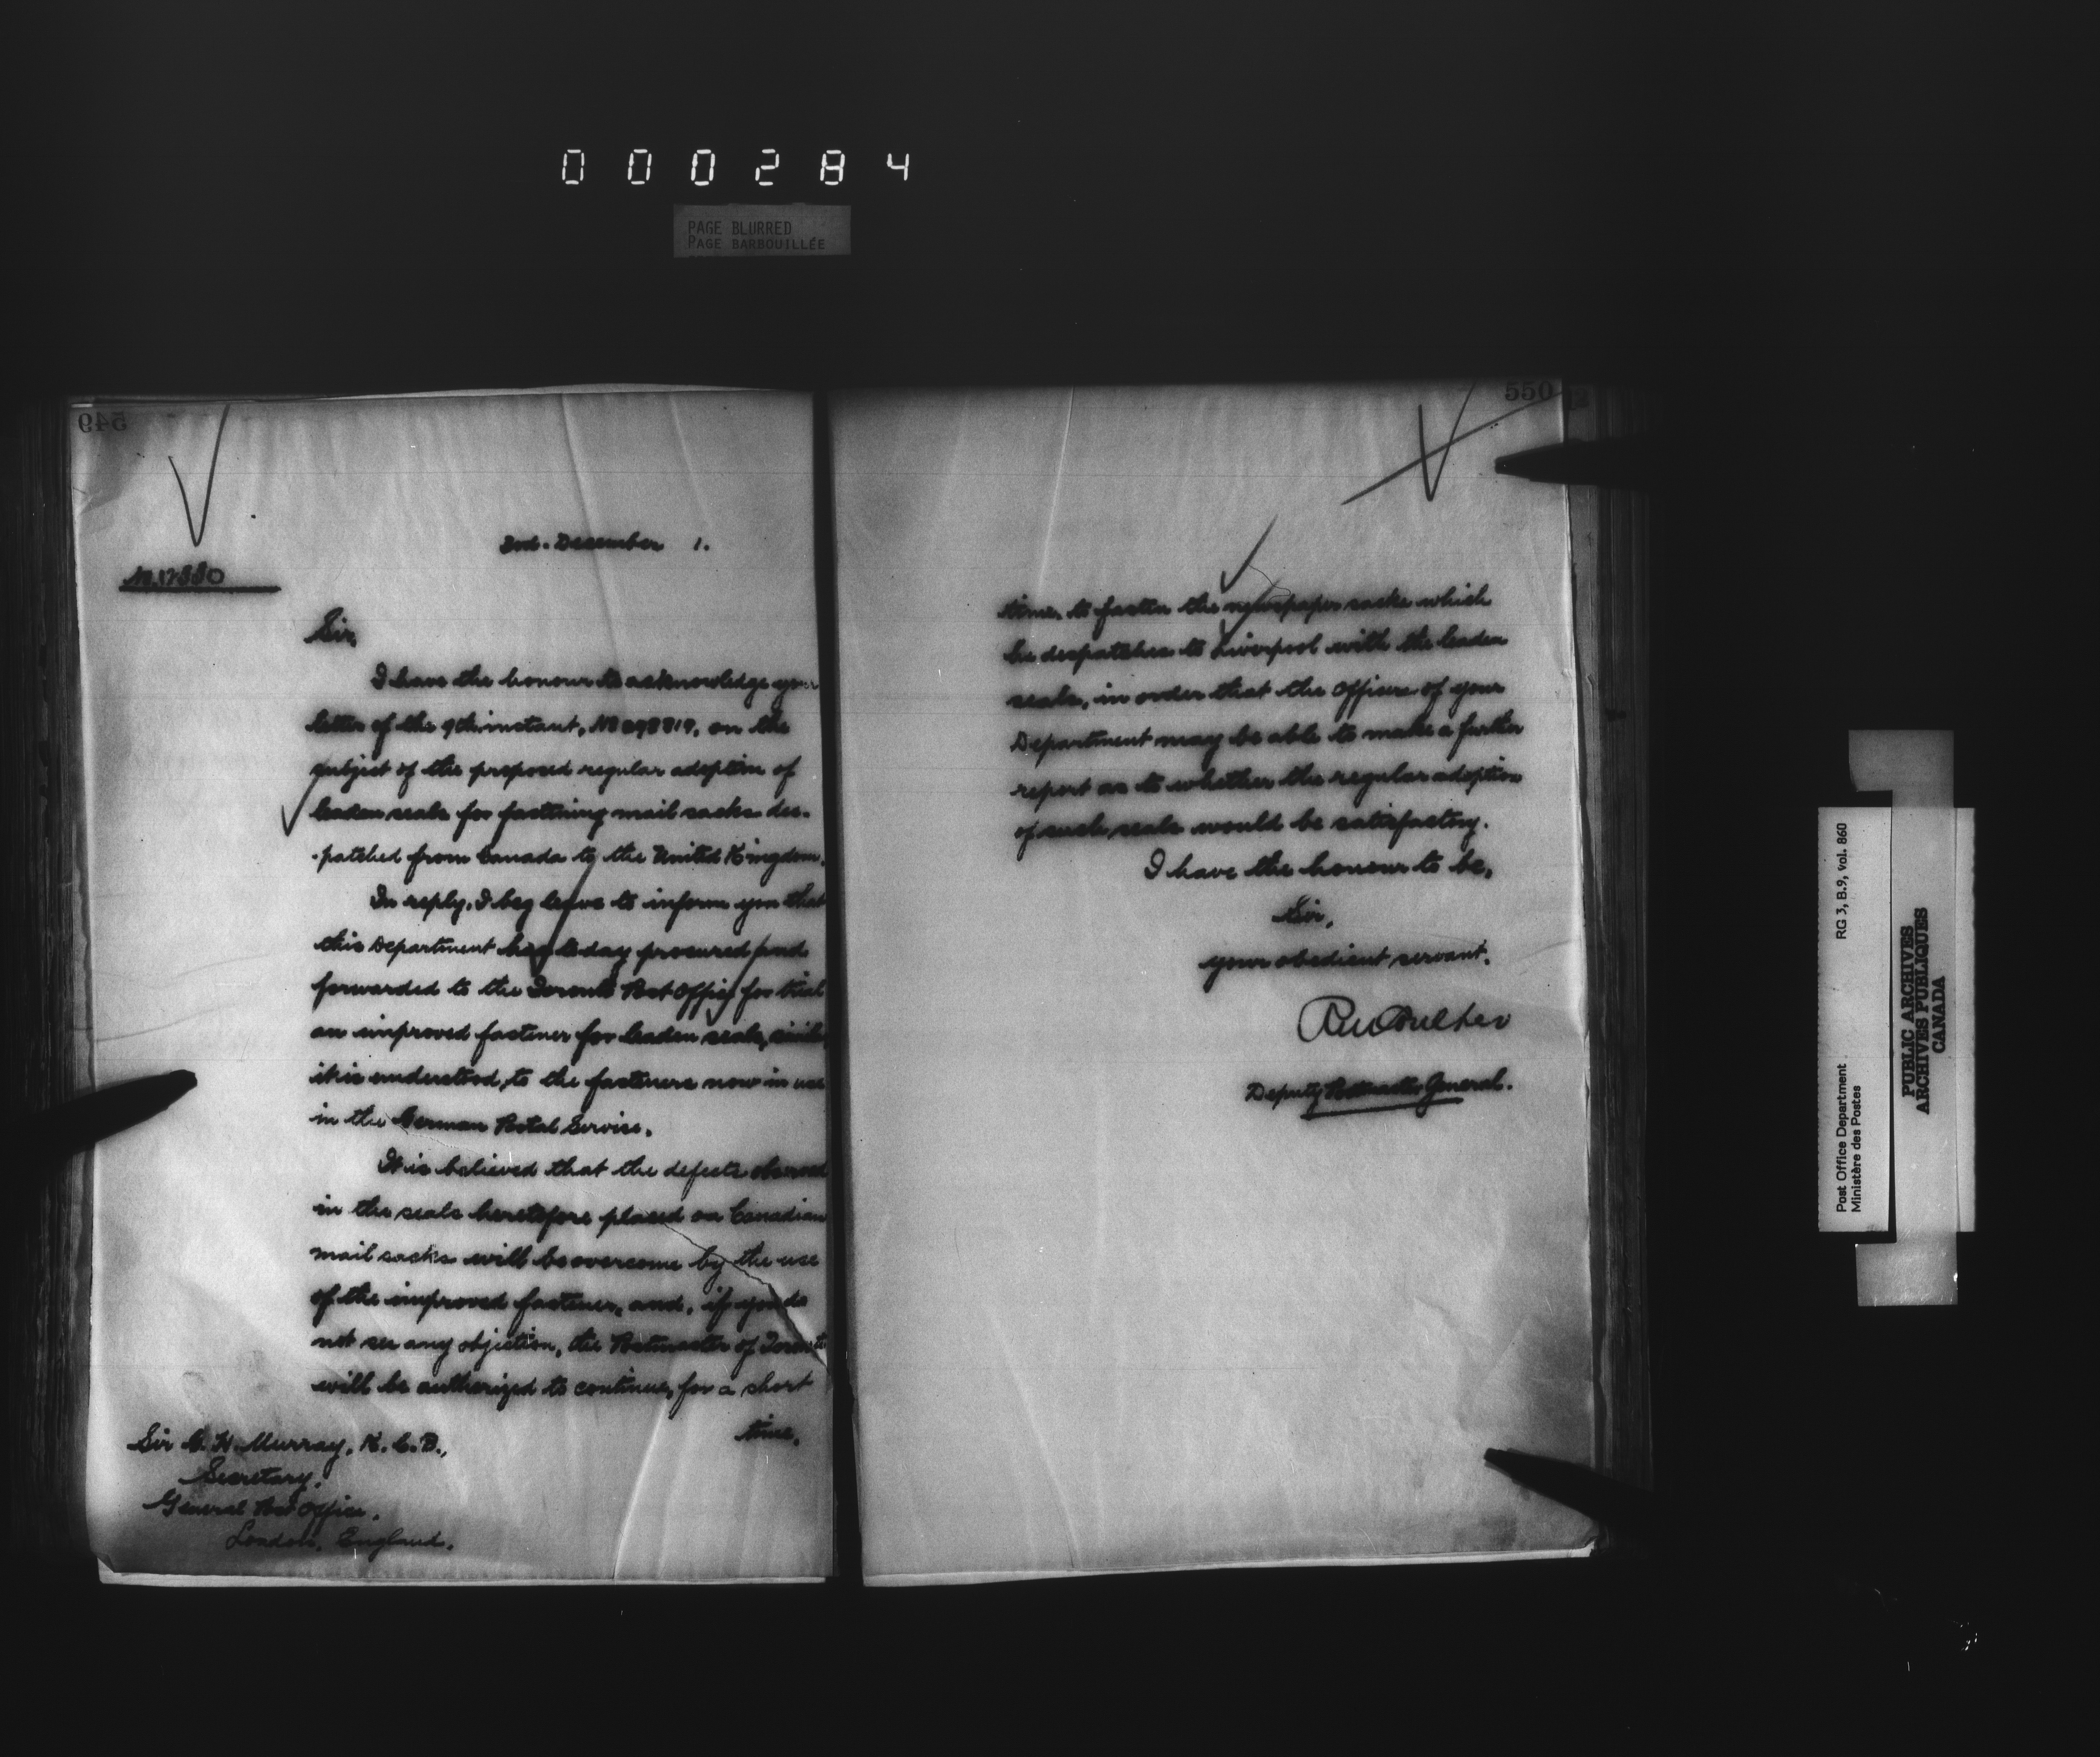 000284
PAGE BLURRED
PAGE BARBOUILLÉE
549
2nd. December 1.
Sir,
I have the honour to acknowledge your
letter of the 9th instant, on the
subject of the proposed regular adoption of
leaden seals for fastening mail sacks des-
-patched from Canada to the United Kingdom.
In reply, I beg leave to inform you that
this Department has to-day procured and
forwarded to the Toronto Post Office for trial
an improved fastener for leaden seals,
it is understood, to the fasteners now in use
in the German Postal Service.
It is believed that the defects observed
in the seals heretofore placed on Canadian
mail sacks will be overcome by the use
of the improved fastener, and, if you do
not see any objection, the Postmaster of Toronto
will be authorized to continue, for a short
time,
Sir G. H. Murray, K. C. B.,
Secretary,
General Post Office,
London, England.
550
time, to fasten the newspaper sacks which
he despatches to Liverpool with the leaden
seals, in order that the officers of your
Department may be able to make a further
report as to whether the regular adoption
of such seals would be satisfactory.
I have the honour to be,
Sir,
your obedient servant,
RM Coulter
Deputy Postmaster General.
Post Office Department RG 3, B.9, vol. 860
Ministère des Postes
PUBLIC ARCHIVES
ARCHIVES PUBLIQUES
CANADA